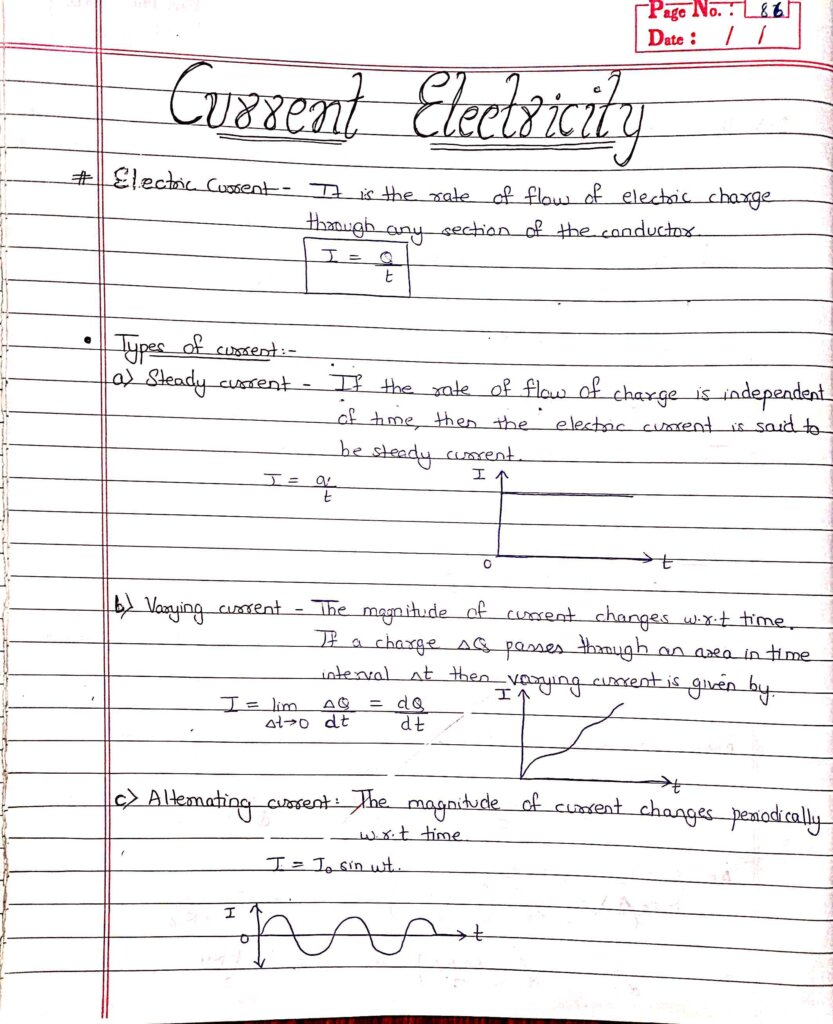 Page No. : 86
Date : / /
Current Electricity
# Electric Current - It is the rate of flow of electric charge
through any section of the conductor.
I = Q/t
• Types of current:-
a) Steady current - If the rate of flow of charge is independent
of time, then the electric current is said to
be steady current.
I = q/t
I
0 t
b) Varying current - The magnitude of current changes w.r.t time.
If a charge ΔQ passes through an area in time
interval Δt then varying current is given by.
I = lim Δt→0 ΔQ/dt = dQ/dt
I
t
c) Alternating current: The magnitude of current changes periodically
w.r.t time
I = I₀ sin ωt.
I
0 t